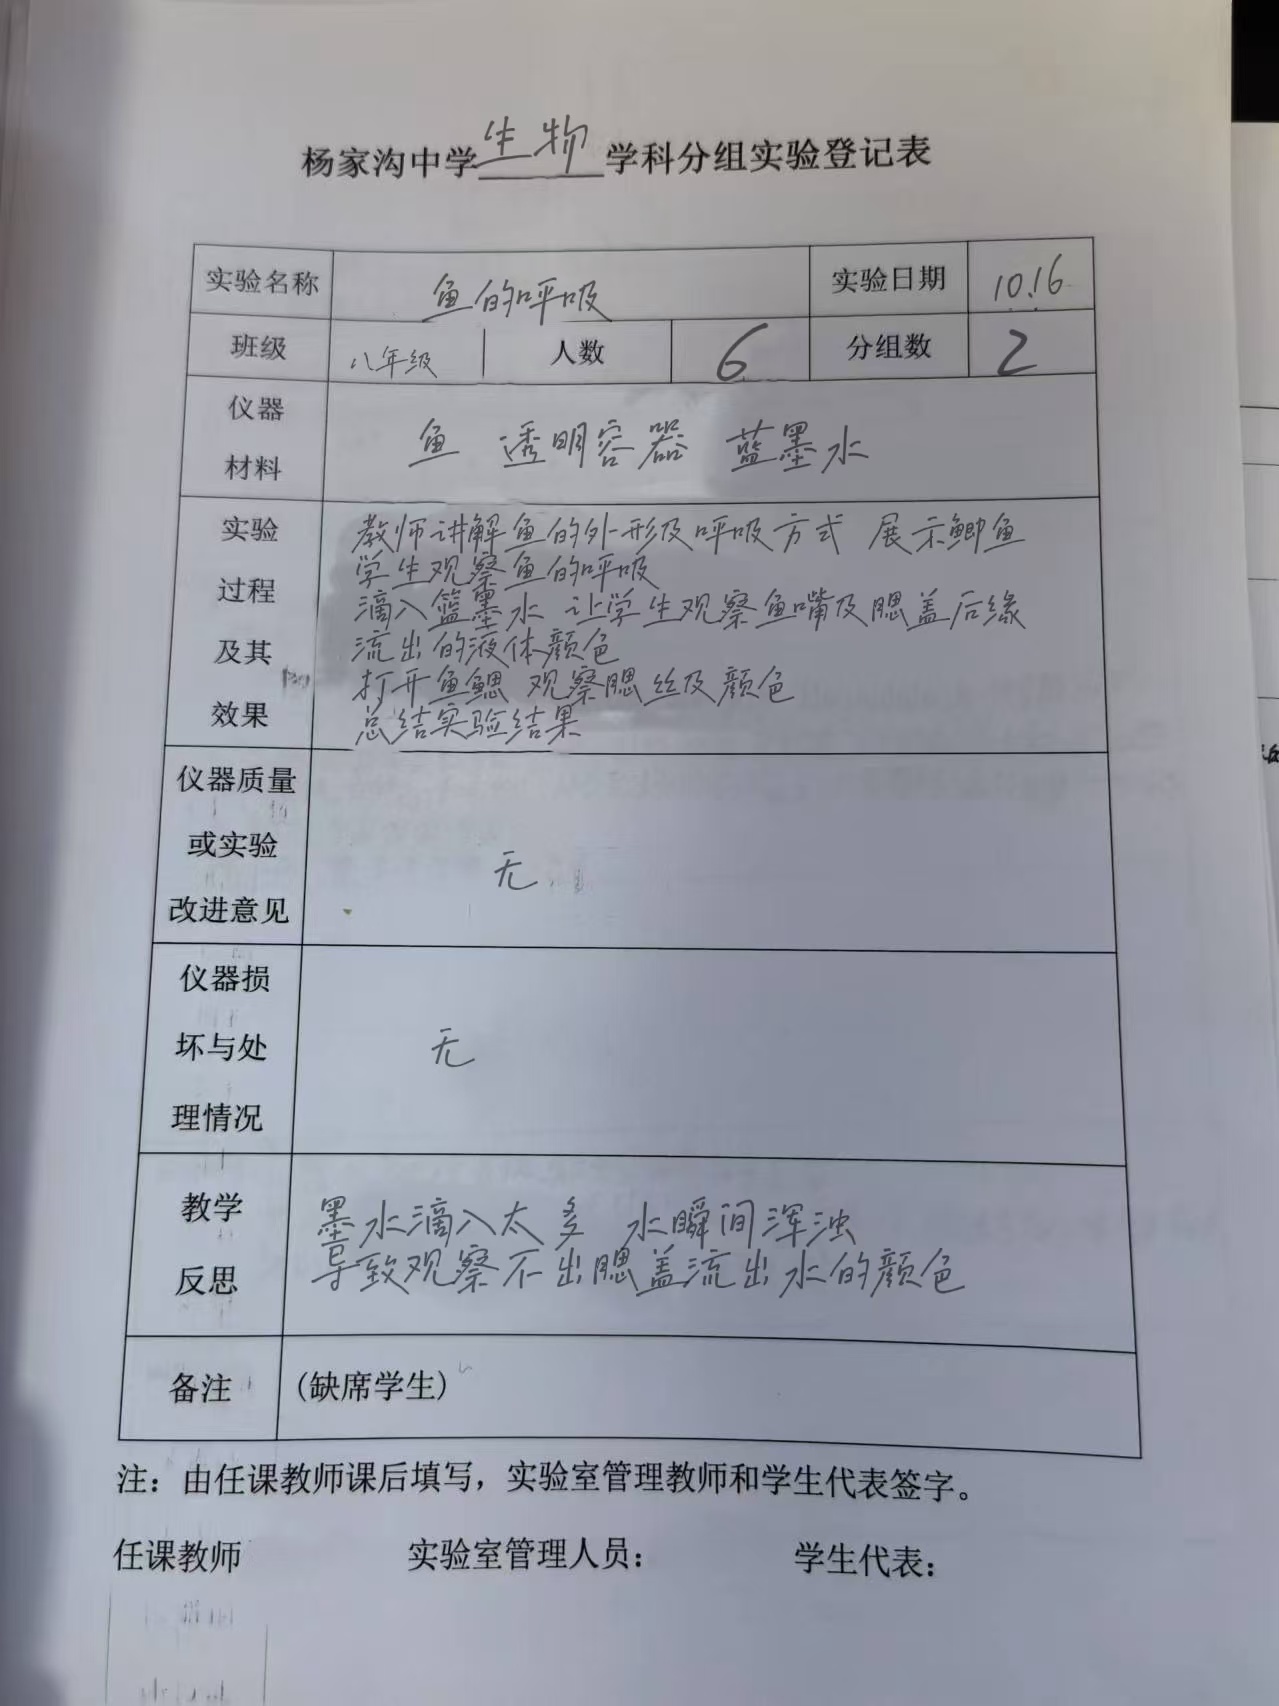 杨家沟中学生物学科分组实验登记表
实验名称 鱼的呼吸 实验日期 10.16
班级 八年级 人数 6 分组数 2
仪器
材料
鱼 透明容器 蓝墨水
实验
过程
及其
效果
教师讲解鱼的外形及呼吸方式 展示鲫鱼
学生观察鱼的呼吸
滴入篮墨水 让学生观察鱼嘴及腮盖后缘
流出的液体颜色
打开鱼鳃 观察腮丝及颜色
总结实验结果
仪器质量
或实验
改进意见
无
仪器损
坏与处
理情况
无
教学
反思
墨水滴入太多 水瞬间浑浊
导致观察不出腮盖流出水的颜色
备注 (缺席学生)
注：由任课教师课后填写，实验室管理教师和学生代表签字。
任课教师 实验室管理人员： 学生代表：